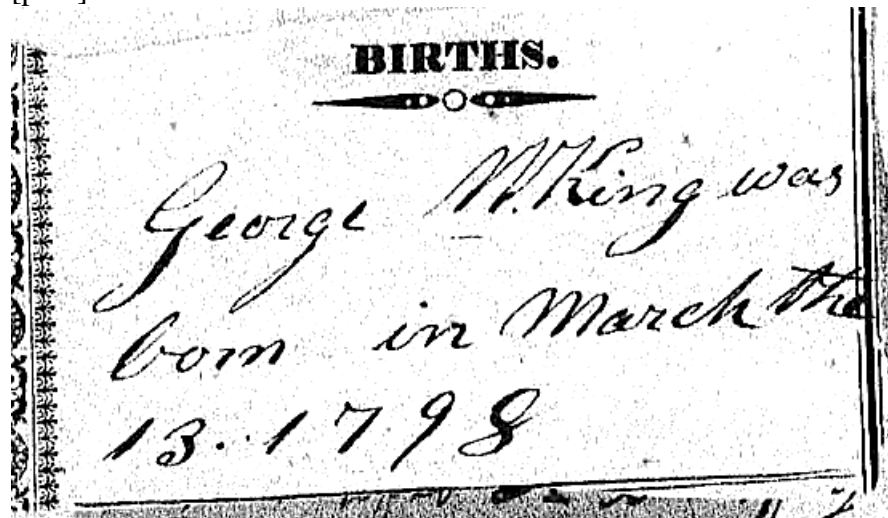 BIRTHS.
George W. King was
born in March the
13. 1798